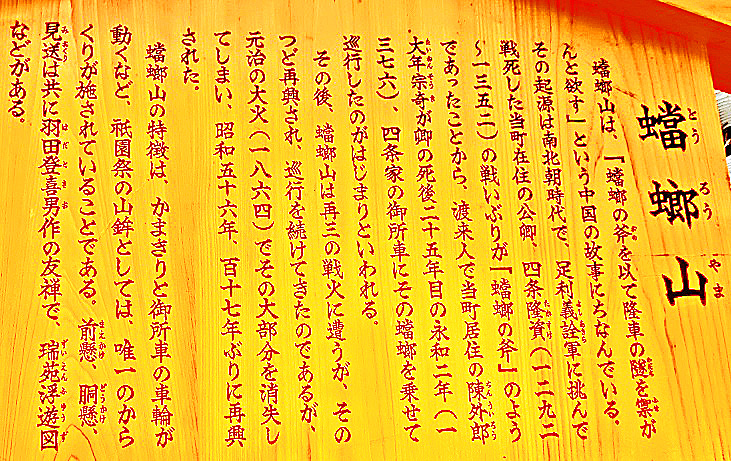 蟷螂山
とうろうやま
蟷螂山は、「蟷螂の斧を以て隆車の隧を禦が
んと欲す」という中国の故事にちなんでいる。
その起源は南北朝時代で、足利義詮軍に挑んで
戦死した当町在住の公卿、四条隆資(一二九二
〜一三五二)の戦いぶりが「蟷螂の斧」のよう
であったことから、渡来人で当町居住の陳外郎
大年宗奇が卿の死後二十五年目の永和二年(一
三七六)、四条家の御所車にその蟷螂を乗せて
巡行したのがはじまりといわれる。
その後、蟷螂山は再三の戦火に遭うが、その
つど再興され、巡行を続けてきたのであるが、
元治の大火(一八六四)でその大部分を消失し
てしまい、昭和五十六年、百十七年ぶりに再興
された。
蟷螂山の特徴は、かまきりと御所車の車輪が
動くなど、祇園祭の山鉾としては、唯一のから
くりが施されていることである。前懸、胴懸、
見送は共に羽田登喜男作の友禅で、瑞苑浮遊図
などがある。